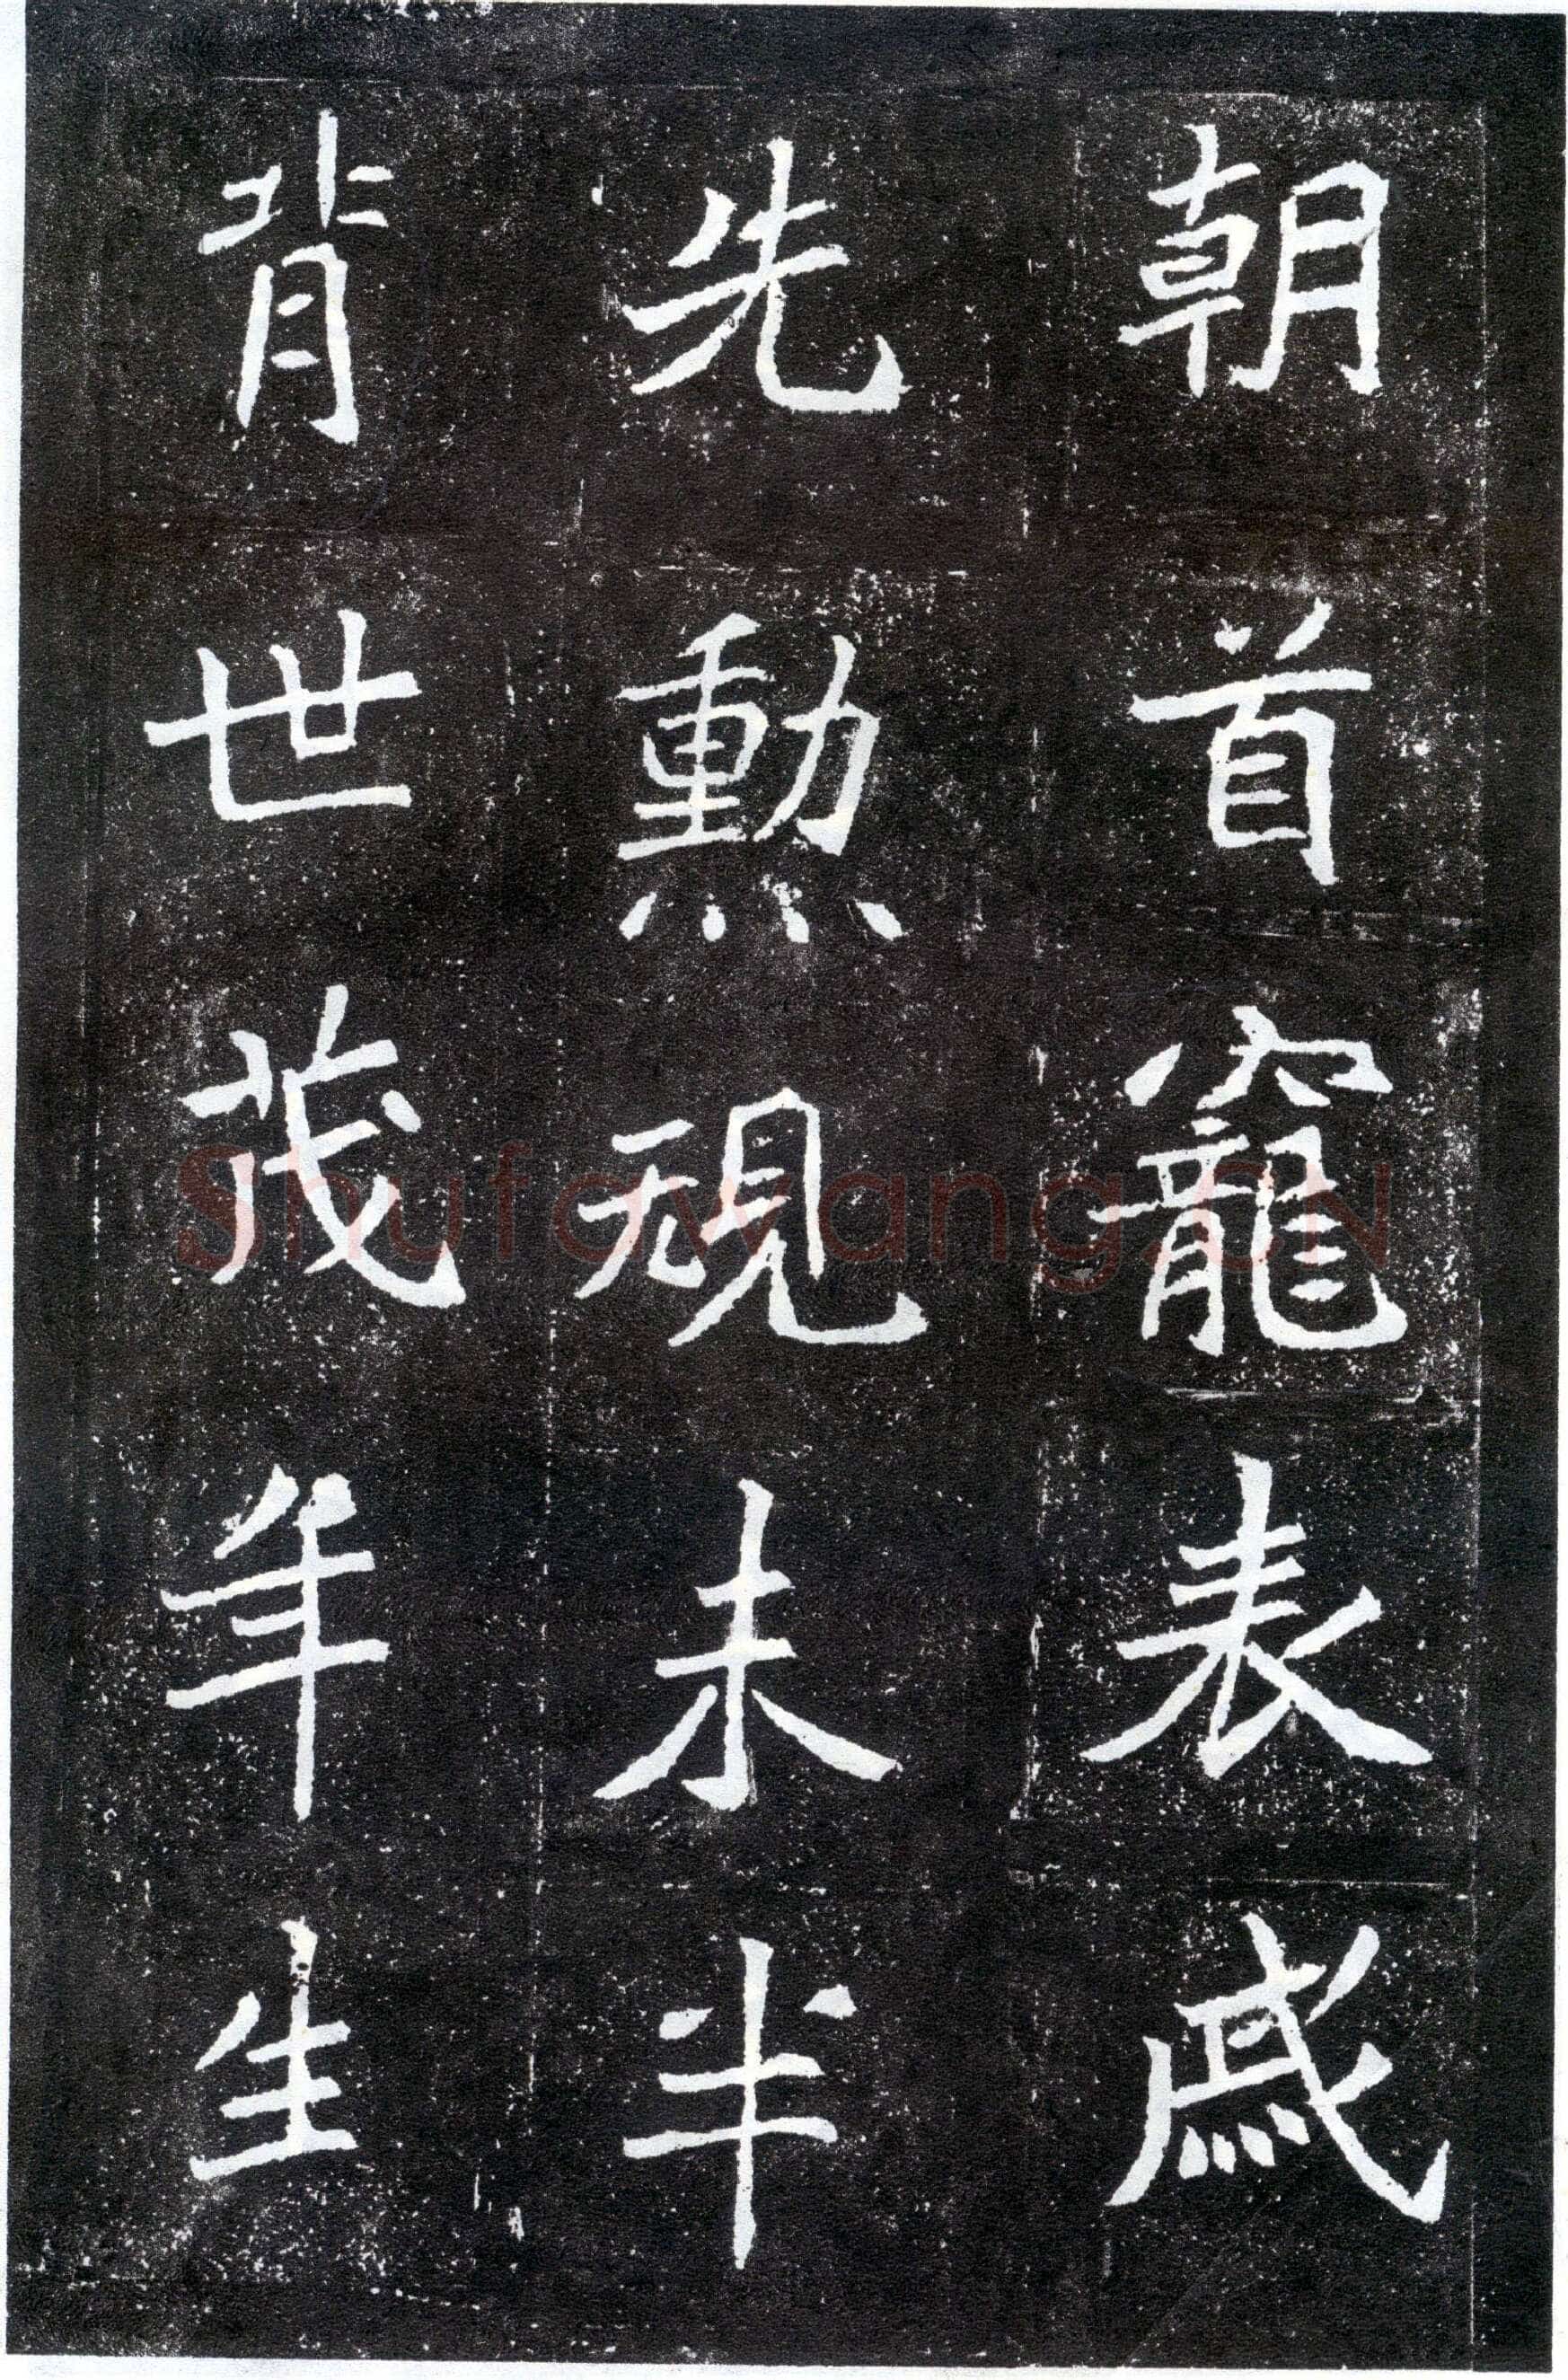 朝首寵表戚
先勳規未半
背世茂年生
Shufawang.CN